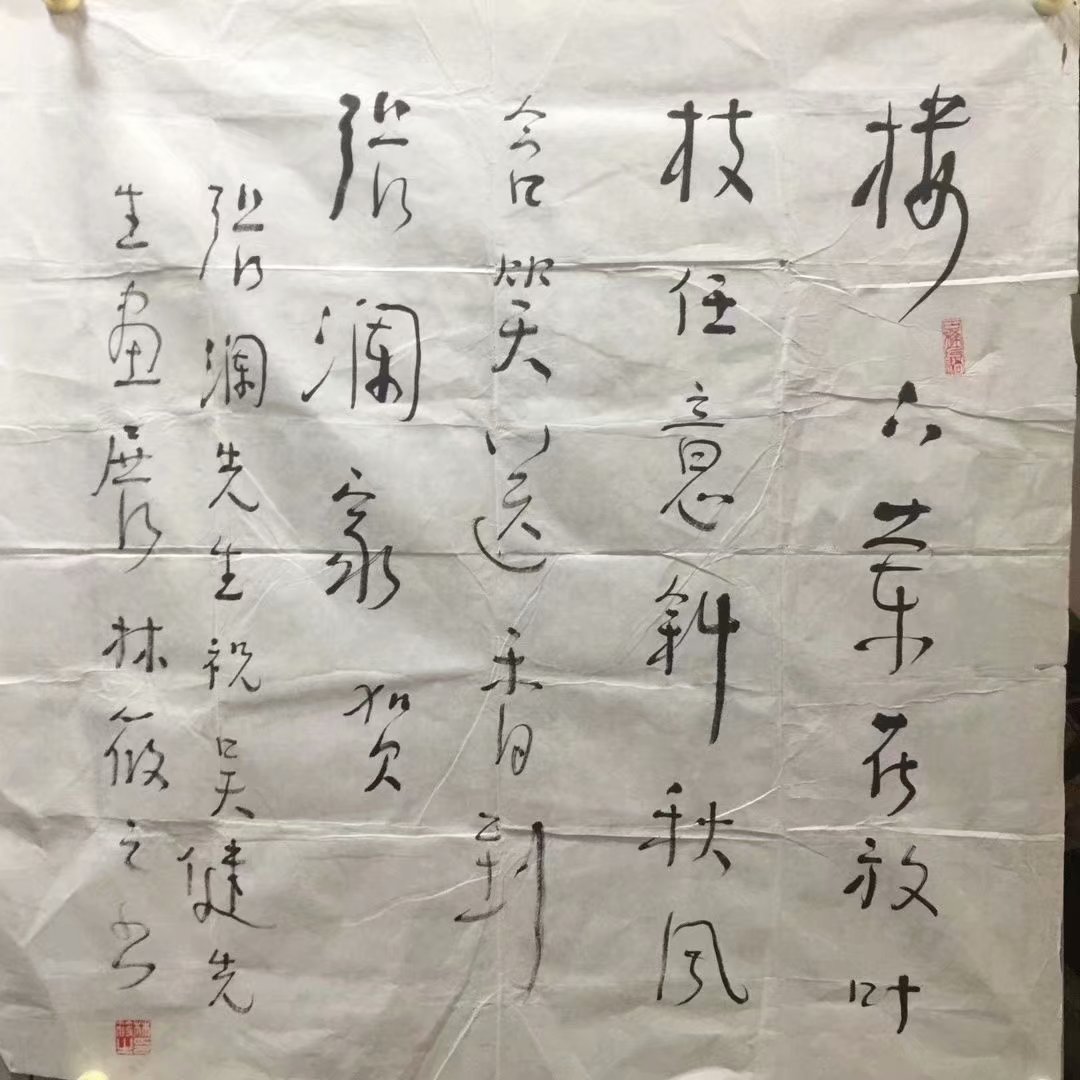 楼下花放叶
枝任意斜秋风
含笑送香到
张澜家贺
张澜先生祝吴健先
生画展林筱之书